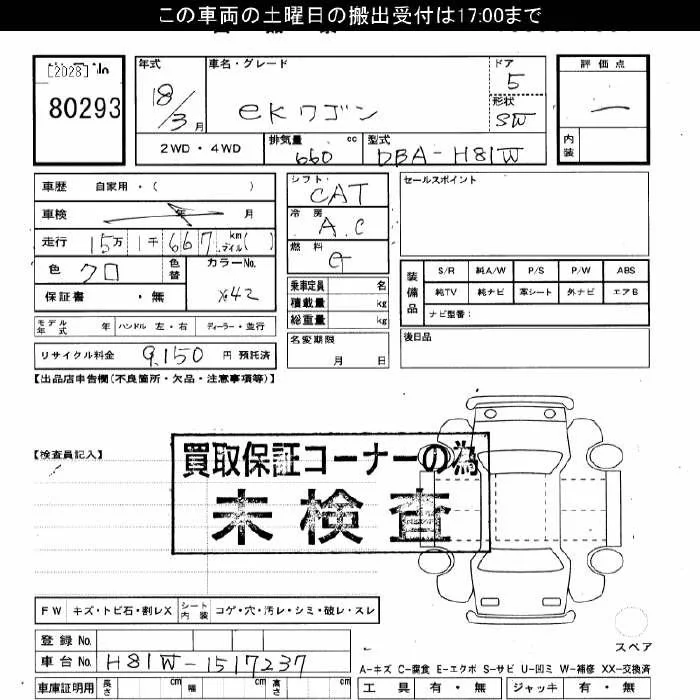 この車両の土曜日の搬出受付は17:00まで
[2028]
80293
年式
18/3月
車名・グレード
eKワゴン
ドア
5
形状
SW
評価点
内装
2WD・4WD
排気量 660 cc
型式 DBA-H81W
車歴 自家用・( )
車検 年 月
走行 15万 1千 667 km マイル( )
色 クロ
色替
カラーNo. X42
保証書 ・無
モデル年式 年 ハンドル 左・右 ディーラー・並行
リサイクル料金 9,150 円 預託済
シフト CAT
冷房 A.C
燃料 G
乗車定員 名
積載量 kg
総重量 kg
名変期限 月 日
セールスポイント
装備品
S/R 純A/W P/S P/W ABS
純TV 純ナビ 革シート 外ナビ エアB
ナビ型番:
後日品
【出品店申告欄(不良箇所・欠品・注意事項等)】
【検査員記入】
買取保証コーナーの為
未検査
FW キズ・トビ石・割レX シート内装 コゲ・穴・汚レ・シミ・破レ・スレ
登録No.
車台No. H81W-1517237
車庫証明用 長さ cm 幅 cm 高さ cm
スペア
A-キズ C-腐食 E-エクボ S-サビ U-凹ミ W-補修 XX-交換済
工具 有・無 ジャッキ 有・無